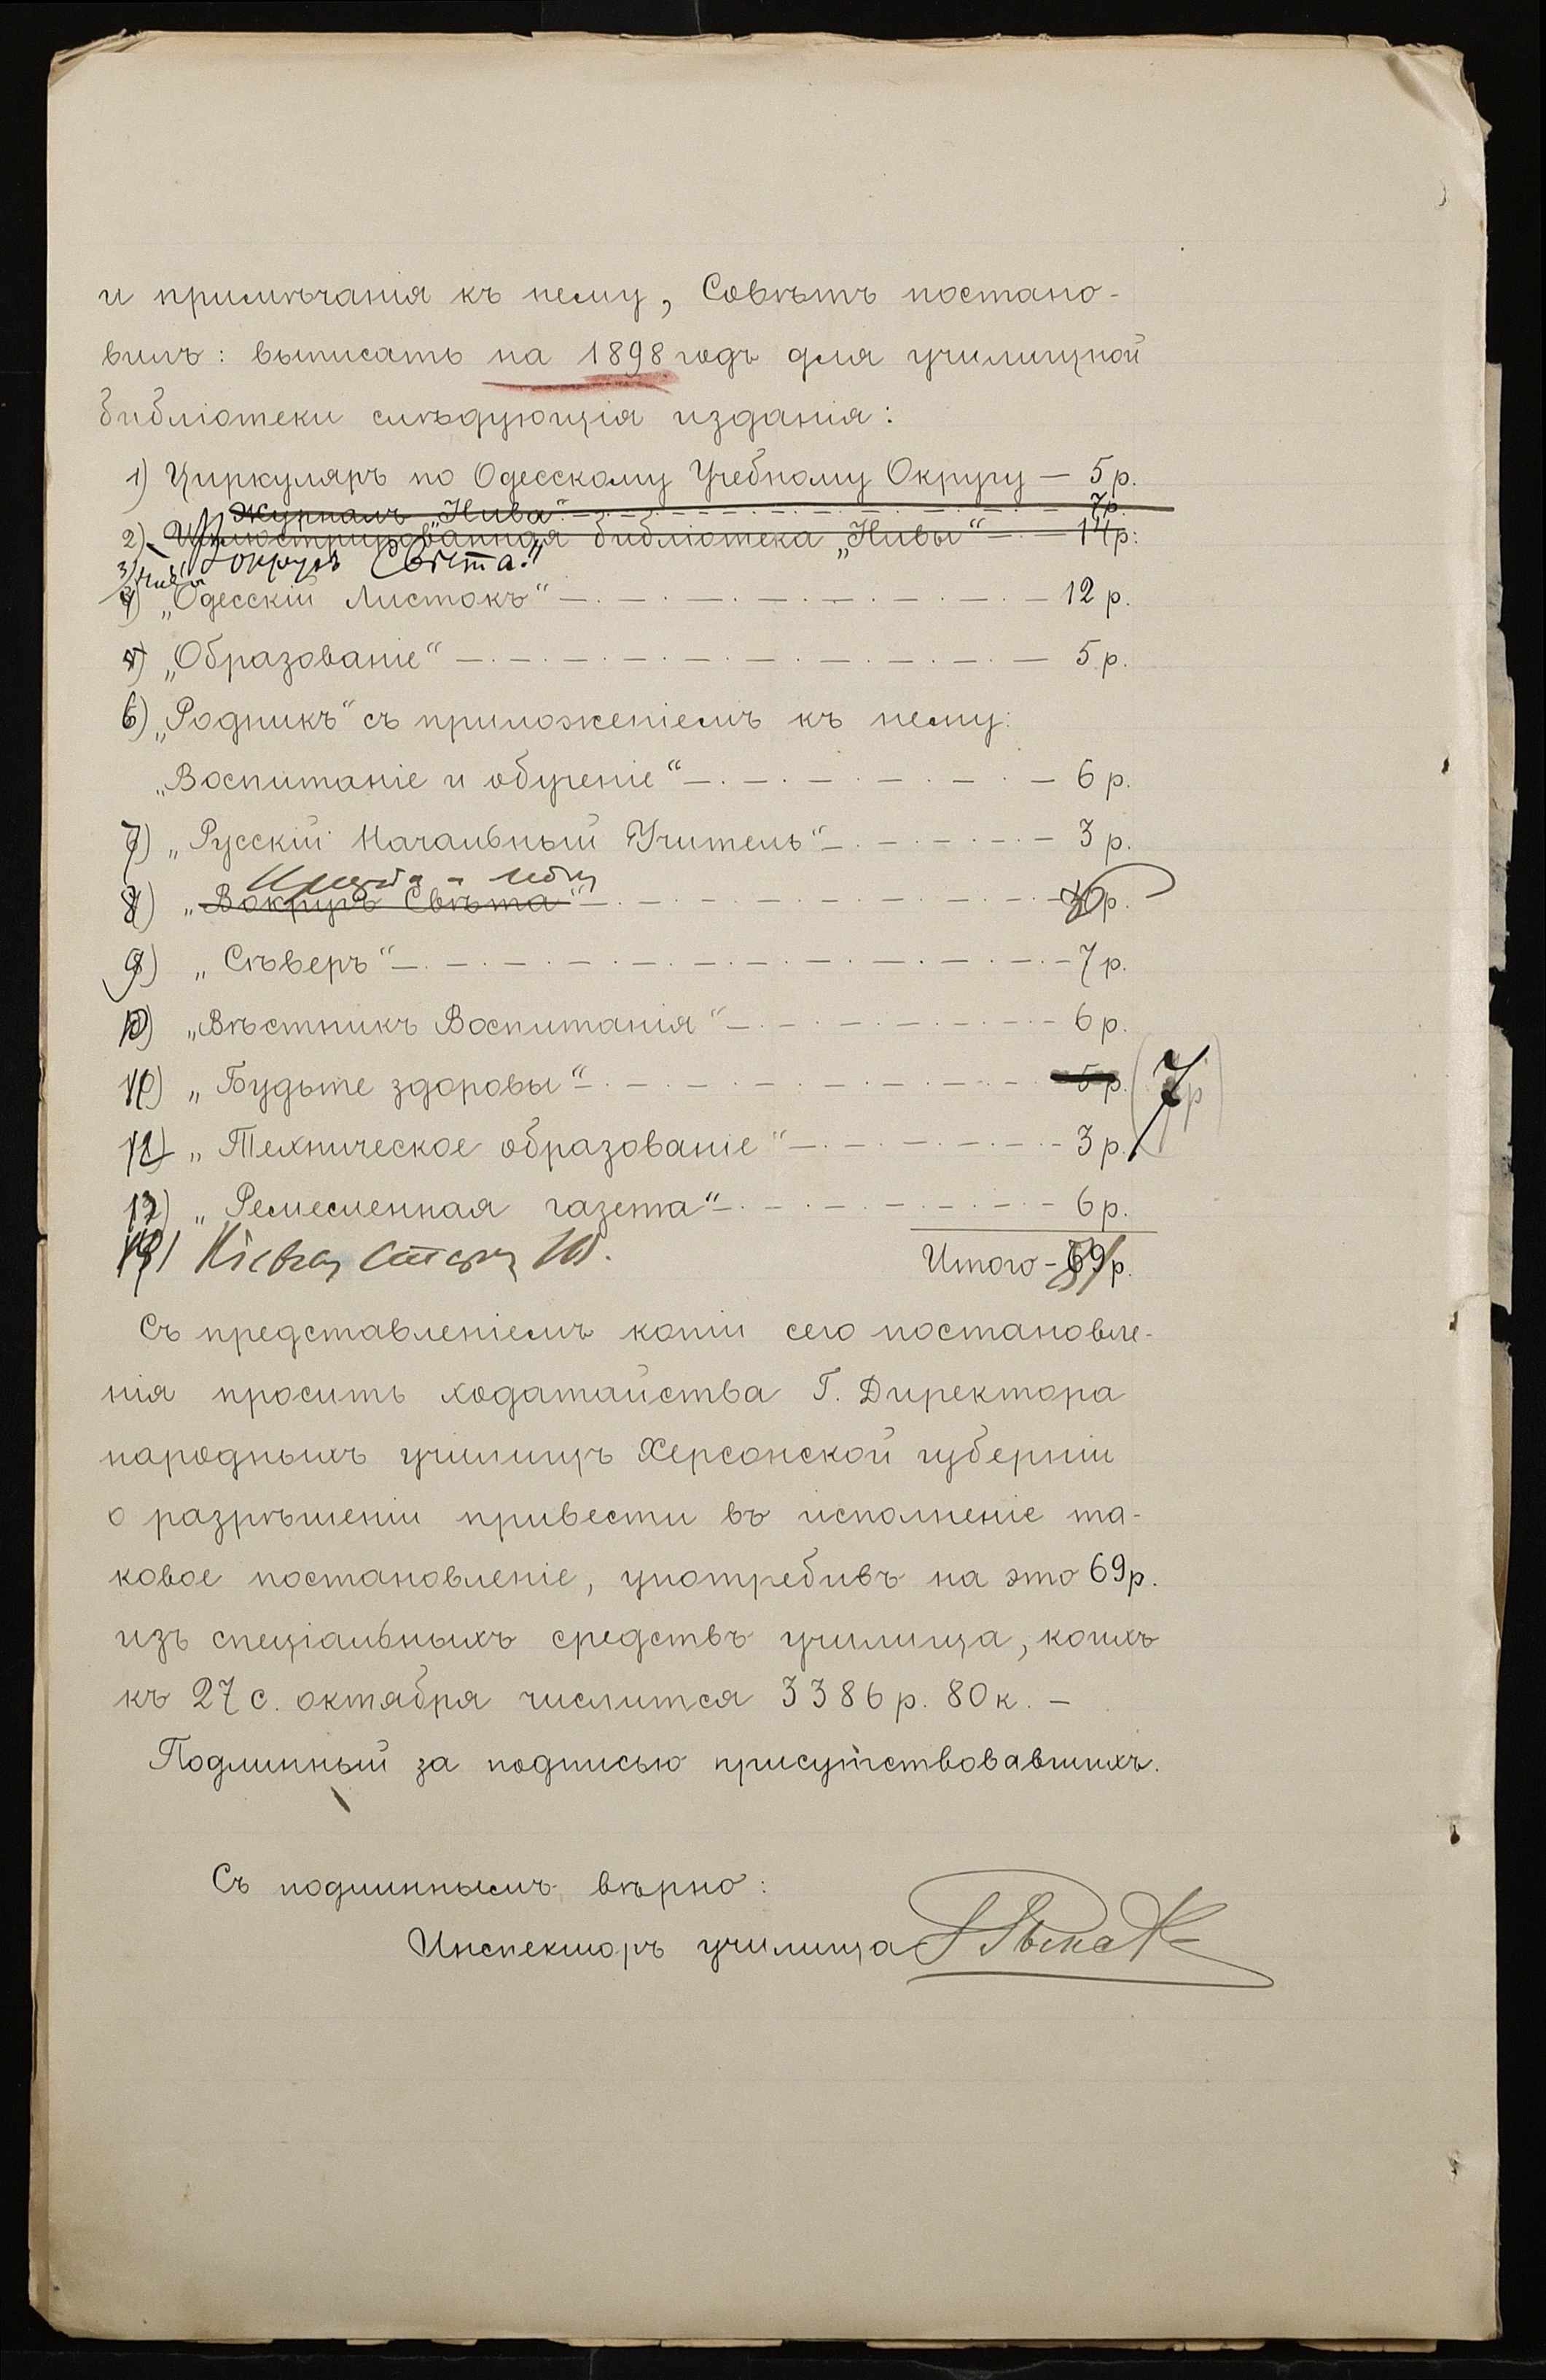 и примѣчанія къ нему, Совѣтъ постано-
вилъ: выписать на 1898 годъ для училищной
библіотеки слѣдующія изданія:
1) Циркуляръ по Одесскому Учебному Округу — 5 р.
Журналъ „Нива“ — 7 р.
2) Иллюстрированная библіотека „Нивы“ — 14 р.
Вокругъ Свѣта."
3) Нива
„Одесскій Листокъ“ — 12 р.
„Образованіе“ — 5 р.
6) „Родникъ“ съ приложеніемъ къ нему:
„Воспитаніе и обученіе“ — 6 р.
7) „Русскій Начальный Учитель“ — 3 р.
8) „Вокругъ Свѣта“ — р.
9) „Сѣверъ“ — 7 р.
10) „Вѣстникъ Воспитанія“ — 6 р.
11) „Будьте здоровы“ — 5 р. (7 р)
12) „Техническое образованіе“ — 3 р.
13) „Ремесленная газета“ — 6 р.
Кіевская Стар. 10.
Итого — 69 р.
Съ представленіемъ копіи сего постановле-
нія просить ходатайства Г. Директора
народныхъ училищъ Херсонской губерніи
о разрѣшеніи привести въ исполненіе та-
ковое постановленіе, употребивъ на это 69 р.
изъ спеціальныхъ средствъ училища, коихъ
къ 27 с. октября числится 3386 р. 80 к. —
Подлинный за подписью присутствовавшихъ.
Съ подлиннымъ вѣрно:
Инспекторъ училища